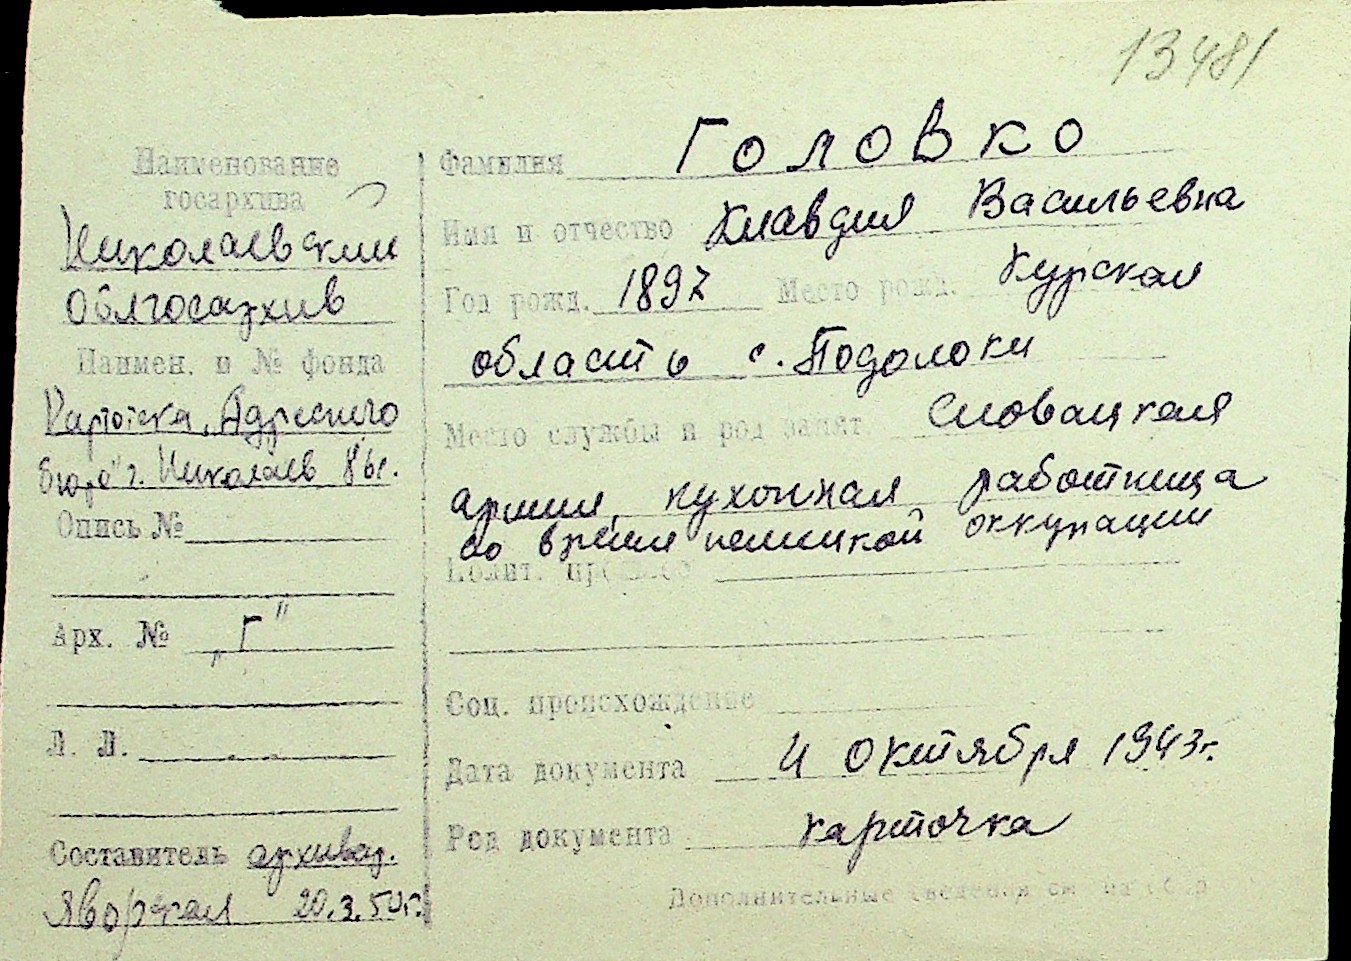 13481
Наименование
госархива
Николаевский
Облгосархив
Наимен. и № фонда
Картотека "Адресного
бюро" г. Николаев
Опись №
Арх. № „Г"
Л. Л.
Составитель архивар.
Яворская 20.3.50г.
Фамилия Головко
Имя и отчество Клавдия Васильевна
Год рожд. 1897 Место рожд. Курская
область с. Подолоки
Место службы и род занят. Словацкая
армия, кухонная работница
во время немецкой оккупации
Полит.
Соц. происхождение
Дата документа 4 октября 1943г.
Род документа карточка
Дополнительные сведения см. на обор